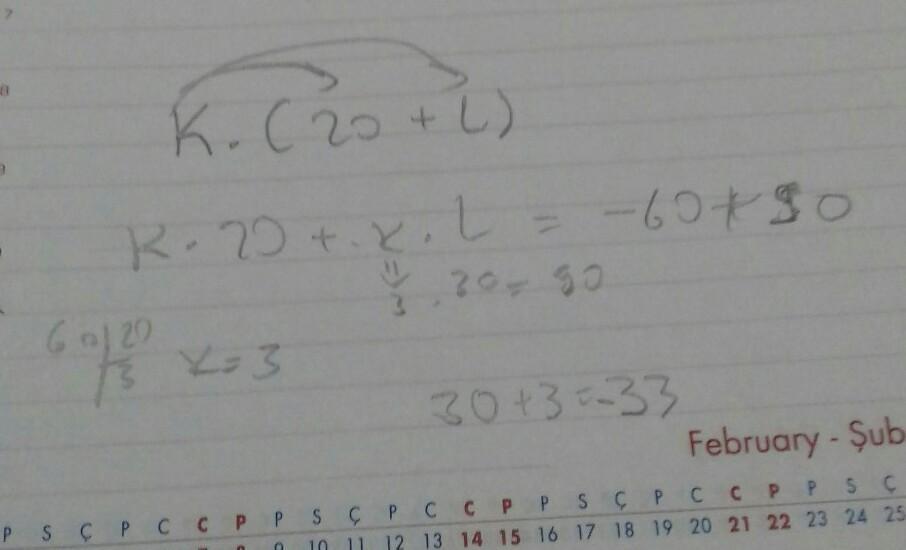 K. (20 + L)
K. 20 + K. L = -60 + 90
3 . 30 = 90
60 20
3 K = 3
30 + 3 = -33
February - Şub
P S Ç P C C P P S Ç P C C P P S Ç P C C P P S Ç
9 10 11 12 13 14 15 16 17 18 19 20 21 22 23 24 25